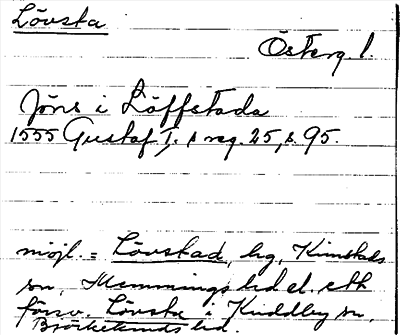 Lövsta
Österg. l.
Jöns i Löffstada
1555 Gustaf I:s reg. 25, s. 95.
möjl. = Lövstad, hg, Kimstads
sn, Memmings hd el. ett
försv. Lövsta i Kuddby sn,
Björkekinds hd.